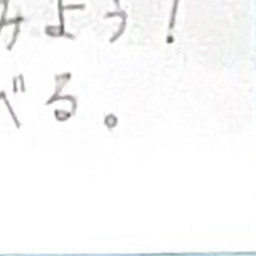 みよう!
べる。